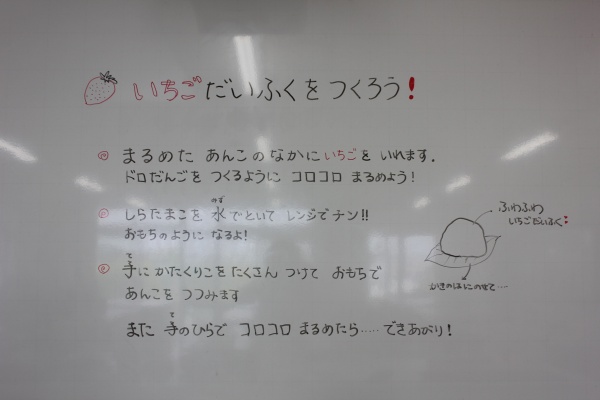 いちごだいふくをつくろう!
まるめた あんこのなかにいちごを いれます.
ドロだんごを つくるように コロコロ まるめよう!
みず
しらたまこを 水でといて レンジで チン!!
おもちのように なるよ!
て
手に かたくりこを たくさん つけて おもちで
あんこを つつみます
て
また 手のひらで コロコロ まるめたら……できあがり!
ふわふわ
いちごだいふく
かきのはにのせて…